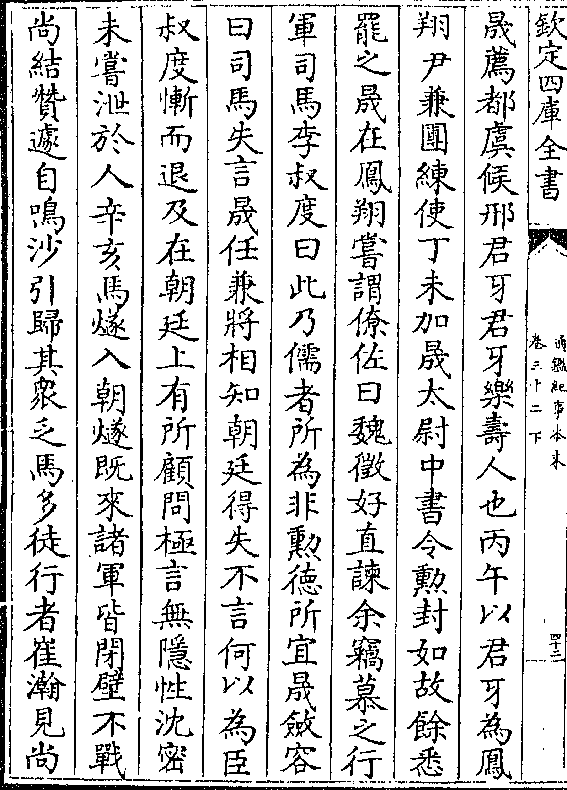 欽定四庫全書
通鑑紀事本末
卷三十二下
四十三
晟薦都虞候邢君牙君牙樂壽人也丙午以君牙為鳳
翔尹兼團練使丁未加晟太尉中書令勲封如故餘悉
罷之晟在鳳翔嘗謂僚佐曰魏徵好直諫余竊慕之行
軍司馬李叔度曰此乃儒者所為非勲德所宜晟斂容
曰司馬失言晟任兼將相知朝廷得失不言何以為臣
叔度慚而退及在朝廷上有所顧問極言無隱性沈密
未嘗泄於人辛亥馬燧入朝燧既來諸軍皆閉壁不戰
尚結贊遽自鳴沙引歸其衆乏馬多徒行者崔瀚見尚